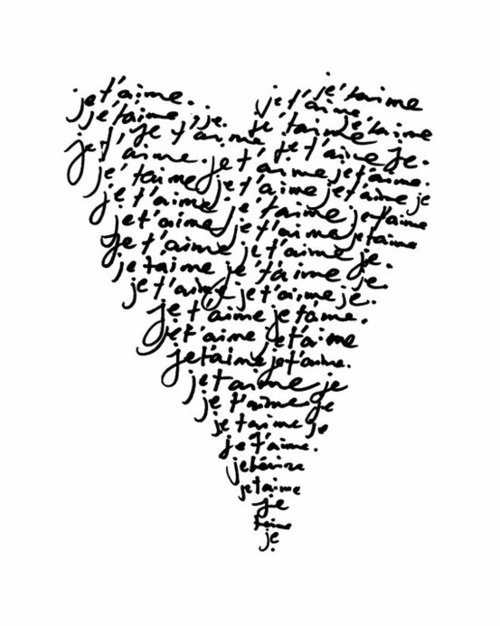 je t'aime. je t'aime je t'aime
je t'aime je. je t'aime je t'aime
je t'aime je t'aime je.
je t'aime. je t'aime je t'aime.
je t'aime je t'aime je t'aime je
je t'aime je t'aime je t'aime
je t'aime je t'aime je t'aime
je t'aime je t'aime je.
je taime je t'aime je
je t'aime je t'aime je.
je t'aime je t'aime.
je t'aime je t'aime
je t'aime je t'aime.
je t'aime je
je t'aime je
je t'aime je
je t'aime.
je t'aime
je
t'aime
je